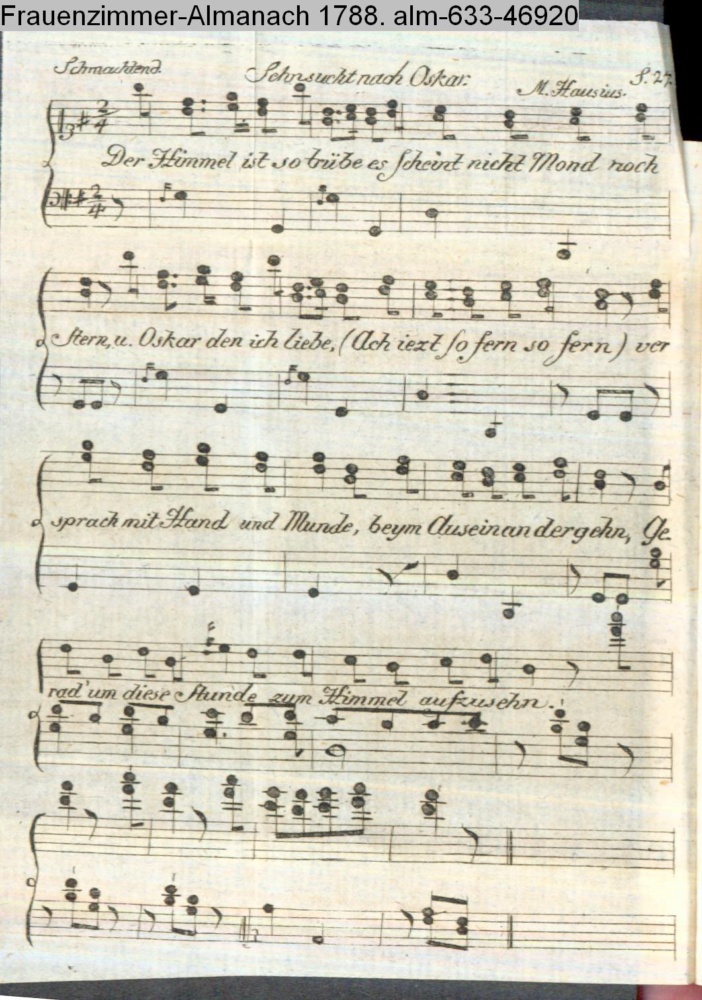 Frauenzimmer-Almanach 1788. alm-633-46920
Schmachtend.
Sehnsucht nach Oskar.
M. Hausius.
S. 27.
Der Himmel ist so trübe es scheint nicht Mond noch
Stern, u. Oskar den ich liebe, (Ach iezt so fern so fern) ver
sprach mit Hand und Munde, beym Auseinandergehn, Ge
rad' um diese Stunde zum Himmel aufzusehn.